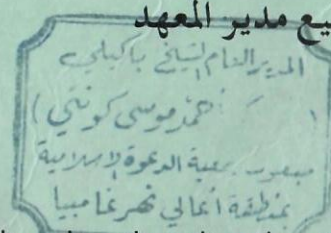 يع مدير المعهد
المدير العام الشيخ باكيلى
( أحمد موسى كونتي )
مبعوث جمعية الدعوة الإسلامية
بمنطقة أعالي نهر غامبيا